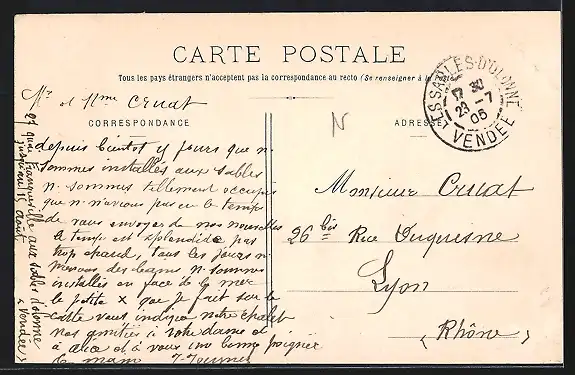 CARTE POSTALE
Tous les pays étrangers n'acceptent pas la correspondance au recto (Se renseigner à la
Mr et Mme Cruat
CORRESPONDANCE
ADRESSE
LES SABLES-D'OLONNE
17 30
23 -7
05
VENDÉE
depuis bientot y jours que n.
sommes installés aux sables
n. sommes tellement occupés
que n n'avions pas eu le temps
de vous envoyer de nos nouvelles
le temps est splendide pas
trop chaud, tous les jours n.
prenons des bains n. sommes
installés en face de la mer
la petite x que je fait sur la
carte vous indique notre chalet
nos amitiés à votre dame et
à alice et à vous une bonne poignée
de main
27 quai Franqueville aux sables d'olonne
(Vendée)
jusqu'au 15 août
N
Monsieur Cruat
26 bis Rue Duquesne
Lyon
(Rhône)